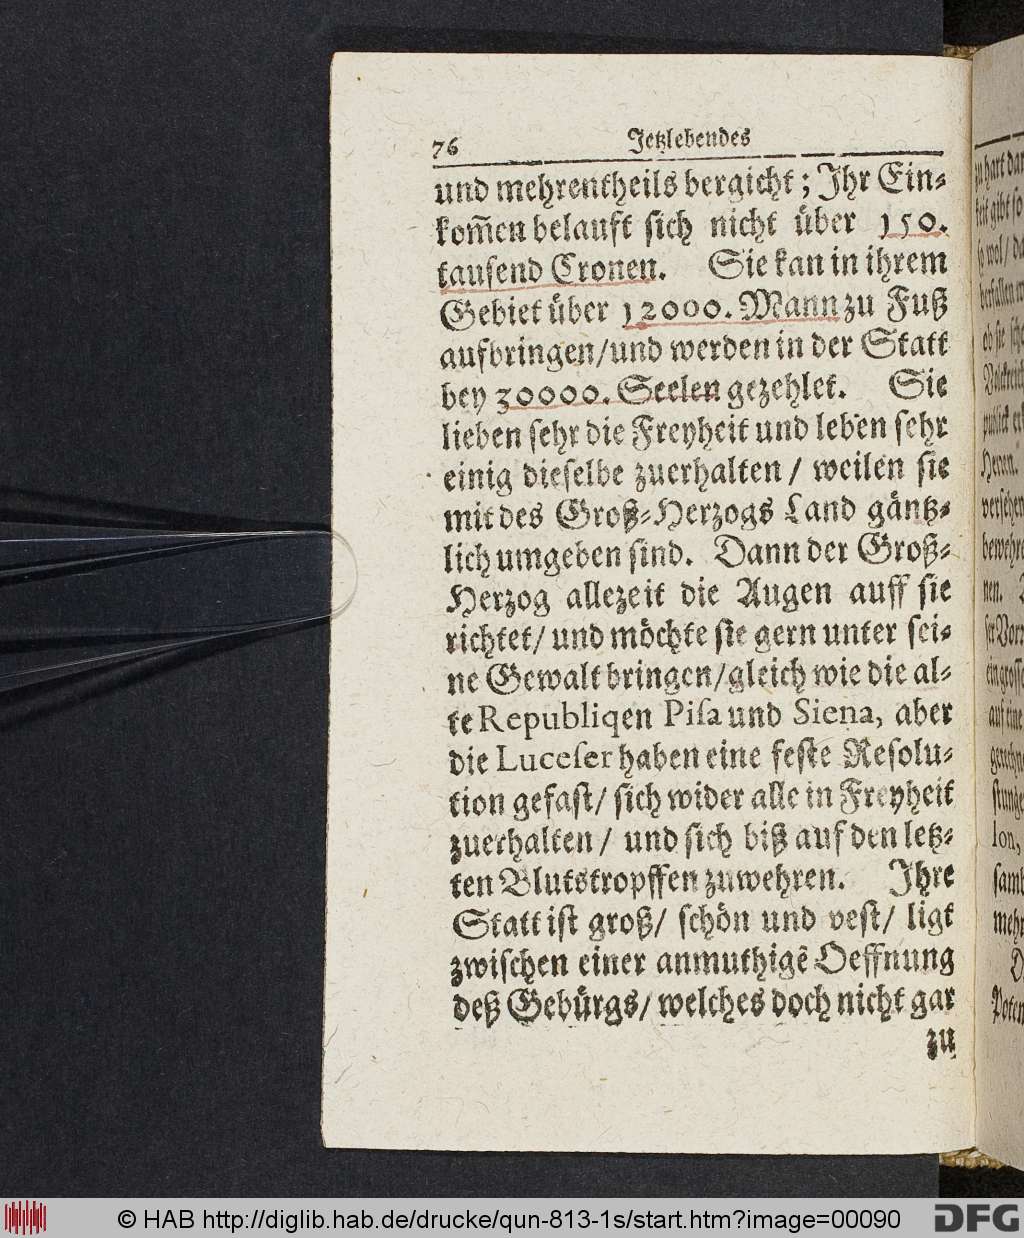 76 Jetzlebendes
und mehrentheils bergicht; Ihr Ein-
kom̃en belaufft sich nicht über 150.
tausend Cronen. Sie kan in ihrem
Gebiet über 12000. Mann zu Fuß
aufbringen/und werden in der Statt
bey 30000. Seelen gezehlet. Sie
lieben sehr die Freyheit und leben sehr
einig dieselbe zuerhalten / weilen sie
mit des Groß-Herzogs Land gäntz-
lich umgeben sind. Dann der Groß-
Herzog allezeit die Augen auff sie
richtet/ und möchte sie gern unter sei-
ne Gewalt bringen/gleich wie die al-
te Republiqen Pisa und Siena, aber
die Luceser haben eine feste Resolu-
tion gefast/ sich wider alle in Freyheit
zuerhalten / und sich biß auf den letz-
ten Blutstropffen zuwehren. Ihre
Statt ist groß/ schön und vest/ ligt
zwischen einer anmuthigẽ Oeffnung
deß Gebürgs/ welches doch nicht gar
zu
© HAB http://diglib.hab.de/drucke/qun-813-1s/start.htm?image=00090
DFG